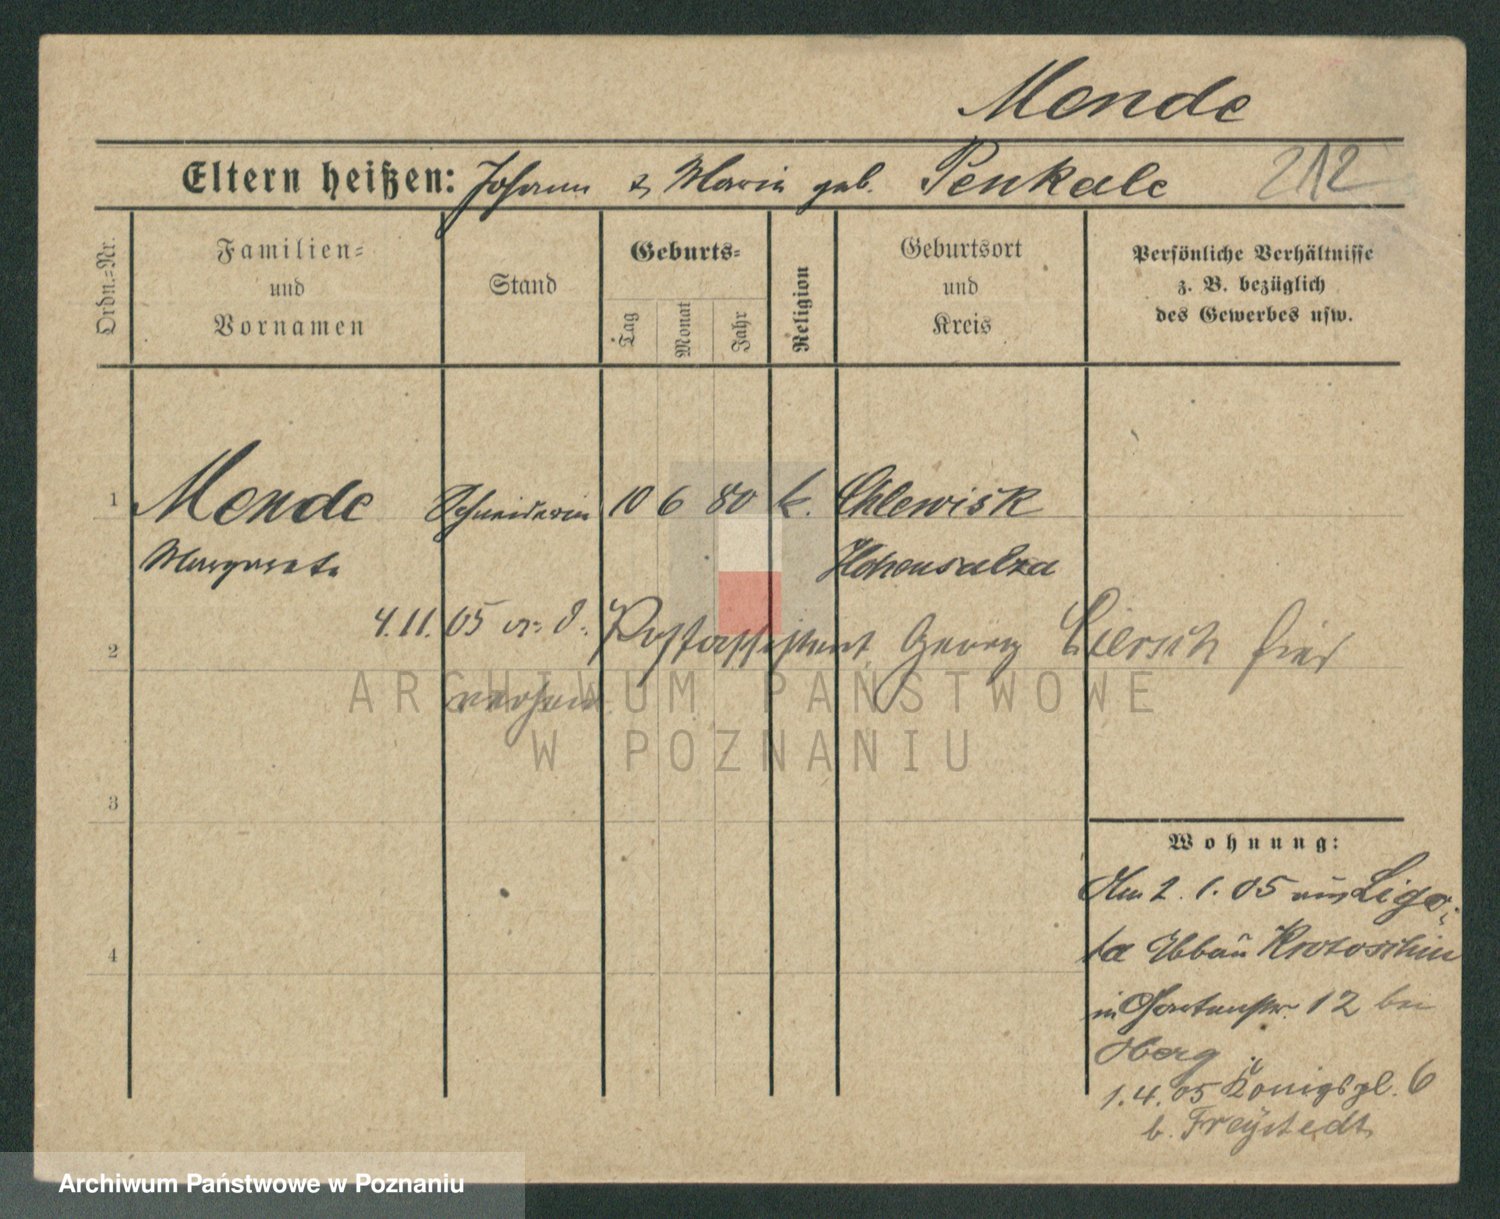 Mende
Eltern heißen: Johann & Maria geb. Penkale 212
Ordn.=Nr.
Familien=
und
Vornamen
Stand
Geburts=
Tag
Monat
Jahr
Religion
Geburtsort
und
Kreis
Persönliche Verhältnisse
z. B. bezüglich
des Gewerbes usw.
1 Mende Schneiderin 10 6 80 k. Chlewisk
Margareta Hohensalza
4.11.05 Postassistent Georg Liersch hier
2
3
4
Wohnung:
Am 2.1.05 aus Ligo-
ta Abbau Krotoschin
in Gartenstr. 12 bei
Oberg
1.4.05 Königspl. 6
b. Freystedt
ARCHIWUM PAŃSTWOWE
W POZNANIU
Archiwum Państwowe w Poznaniu